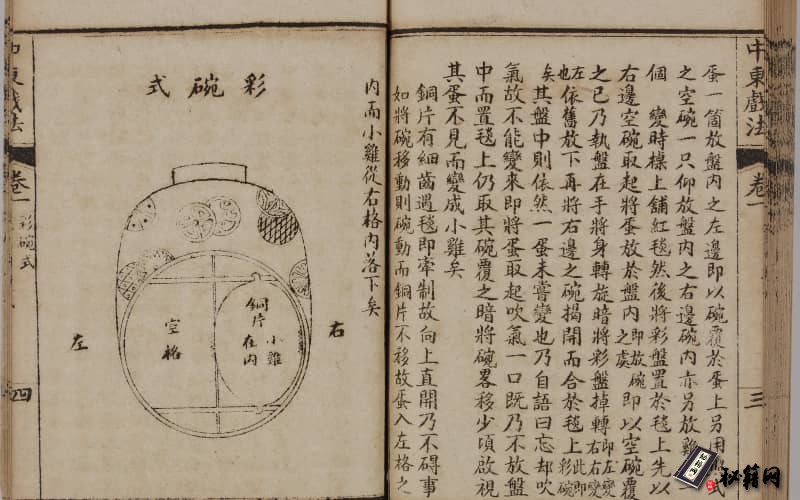 中東戲法
卷一
三
蛋一箇放盤內之左邊即以碗覆於蛋上另用
之空碗一只仰放盤內之右邊碗內亦另放雞
個 變時檯上舖紅毯然後將彩盤置於毯上先以
右邊空碗取起將蛋放於盤內即放碗之處即以空碗覆
之已乃執盤在手將身轉旋暗將彩盤掉轉即左變右右變
左也依舊放下再將右邊之碗揭開而合於毯上此即彩碗
矣其盤中則依然一蛋未嘗變也乃自語曰忘却吹
氣故不能變來即將蛋取起吹氣一口既乃不放盤
中而置毯上仍取其碗覆之暗將碗畧移少頃啟視
其蛋不見而變成小雞矣
銅片有細齒遇毯即牽制故向上直開乃不碍事
如將碗移動則碗動而銅片不移故蛋入左格之
內而小雞從右格內落下矣
彩碗式
右
銅片在內
小雞
空格
左
中東戲法
卷一
彩碗式
四
秘籍网